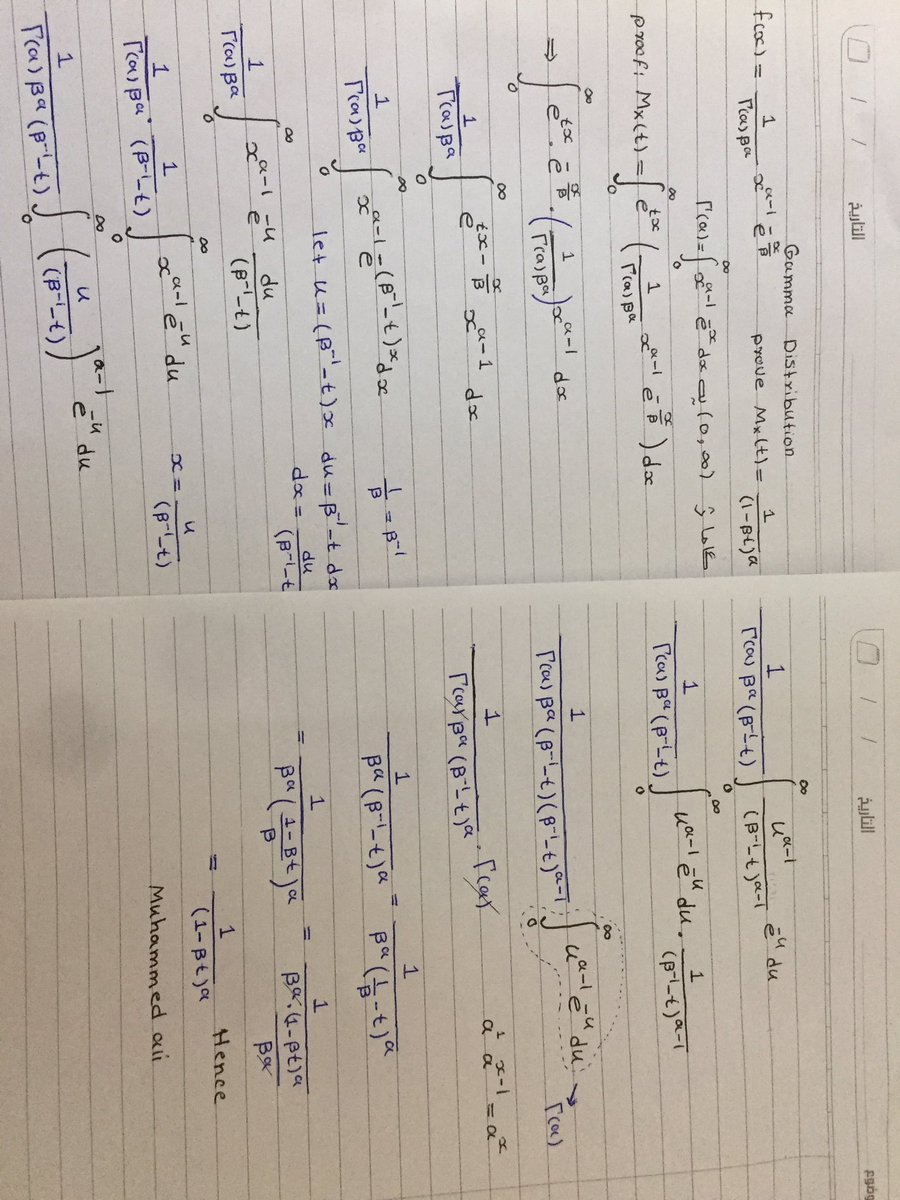 التاريخ / /
Gamma Distribution
f(x) = 1/(Γ(α) β^α) x^(α-1) e^(-x/β) prove Mx(t) = 1/(1-βt)^α
Γ(α) = ∫₀^∞ x^(α-1) e^(-x) dx
proof: Mx(t) = ∫₀^∞ e^(tx) (1/(Γ(α) β^α) x^(α-1) e^(-x/β)) dx
⇒ ∫₀^∞ e^(tx) · e^(-x/β) · (1/(Γ(α) β^α)) x^(α-1) dx
1/(Γ(α) β^α) ∫₀^∞ e^(tx - x/β) x^(α-1) dx
1/(Γ(α) β^α) ∫₀^∞ x^(α-1) e^(-(β^-1 - t)x) dx 1/β = β^-1
let u = (β^-1 - t) x du = β^-1 - t dx
dx = du/(β^-1 - t
1/(Γ(α) β^α) ∫₀^∞ x^(α-1) e^(-u) du/(β^-1 - t)
1/(Γ(α) β^α) · 1/(β^-1 - t) ∫₀^∞ x^(α-1) e^(-u) du x = u/(β^-1 - t)
1/(Γ(α) β^α (β^-1 - t)) ∫₀^∞ (u/(β^-1 - t))^(α-1) e^(-u) du
التاريخ / /
1/(Γ(α) β^α (β^-1 - t)) ∫₀^∞ u^(α-1)/(β^-1 - t)^(α-1) e^(-u) du
1/(Γ(α) β^α (β^-1 - t)) ∫₀^∞ u^(α-1) e^(-u) du · 1/(β^-1 - t)^(α-1)
1/(Γ(α) β^α (β^-1 - t)(β^-1 - t)^(α-1)) ∫₀^∞ u^(α-1) e^(-u) du → Γ(α)
1/(Γ(α) β^α (β^-1 - t)^α) · Γ(α) a^1 a^(x-1) = a^x
1/(β^α (β^-1 - t)^α) = 1/(β^α (1/β - t)^α)
= 1/(β^α ((1-βt)/β)^α) = 1/(β^α · (1-βt)^α/β^α)
= 1/(1-βt)^α Hence
Muhammed ali